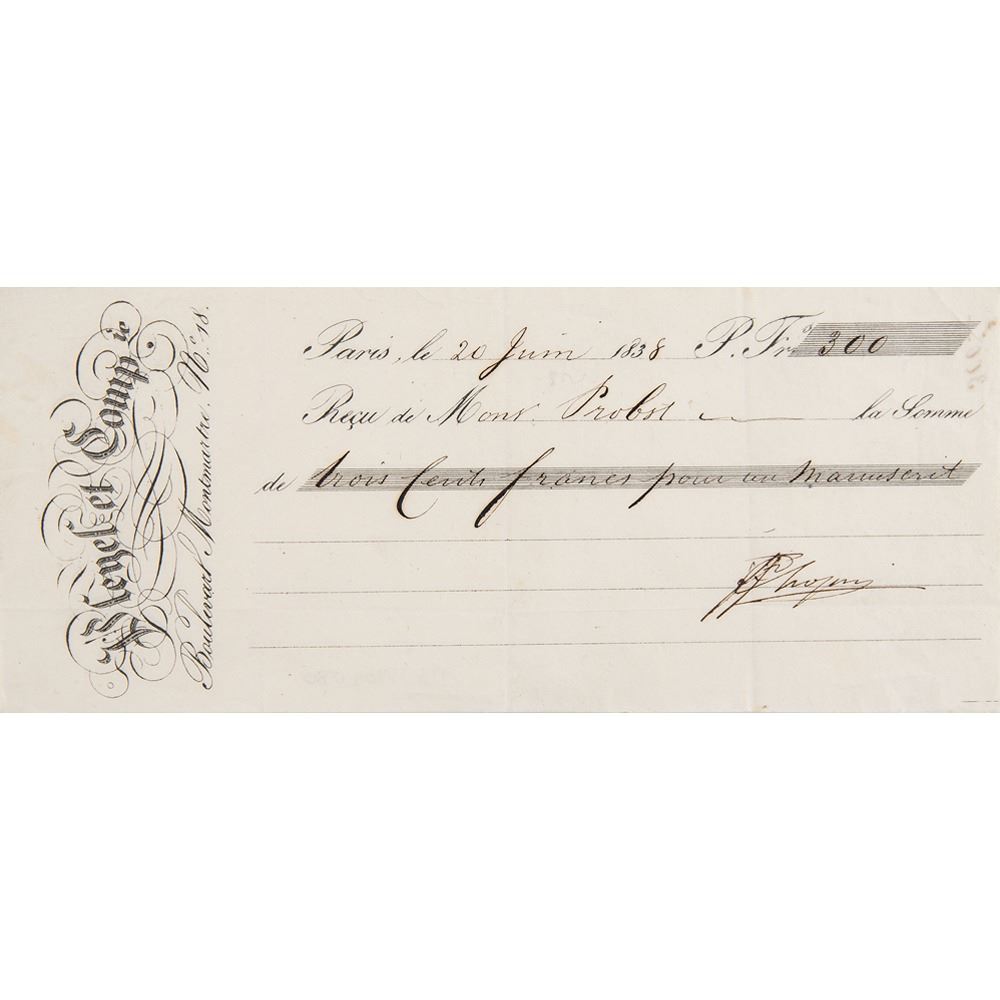 Pleyel et Comp.ie
Boulevart Montmartre N.º 18.
Paris, le 20 Juin 1838 P. Frs 300
Reçu de Mons. Probst la Somme
de trois Cents francs pour un Manuscrit
FChopin